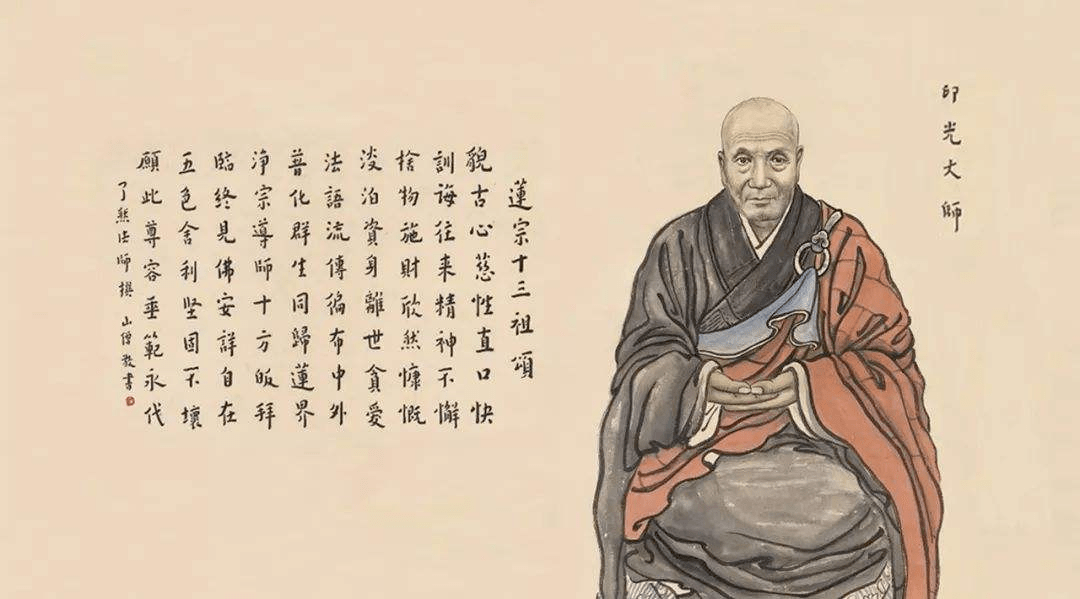 印光大師
蓮宗十三祖頌
貌古心慈性直口快
訓誨往来精神不懈
捨物施財欣然慷慨
淡泊資身離世貪愛
法語流傳徧布中外
普化群生同歸蓮界
净宗導師十方皈拜
臨終見佛安詳自在
五色舍利坚固不壞
願此尊容垂範永代
了然法師撰 山僧書